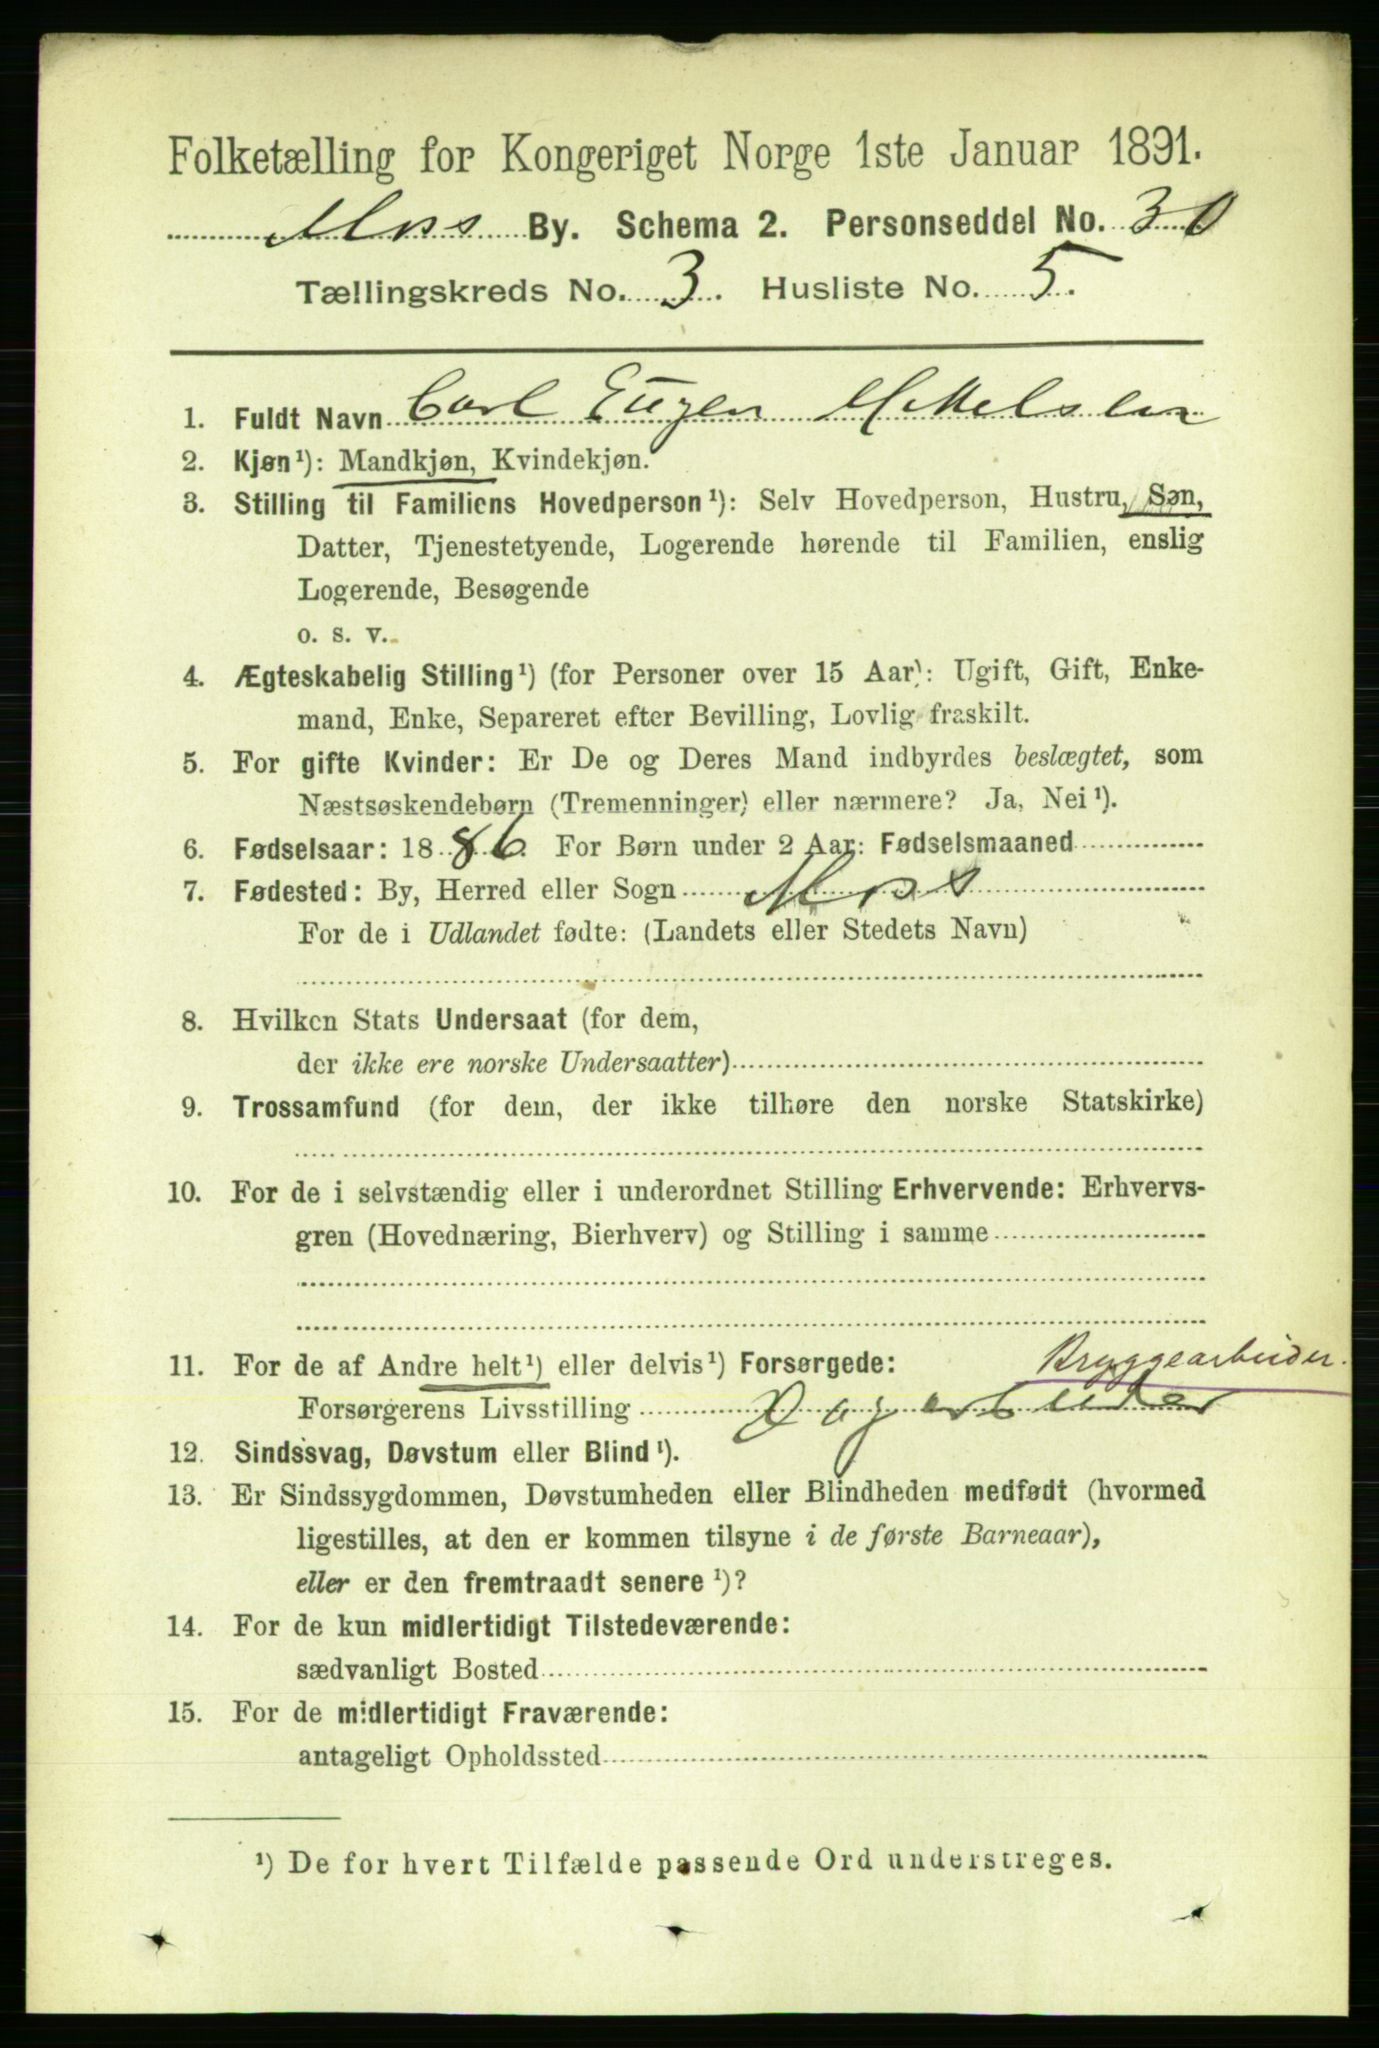 Folketælling for Kongeriget Norge 1ste Januar 1891.
Moss By. Schema 2. Personseddel No. 30
Tællingskreds No. 3. Husliste No. 5.
1. Fuldt Navn Carl Eugen Mikkelsen
2. Kjøn¹): Mandkjøn, Kvindekjøn.
3. Stilling til Familiens Hovedperson¹): Selv Hovedperson, Hustru, Søn,
Datter, Tjenestetyende, Logerende hørende til Familien, enslig
Logerende, Besøgende
o. s. v.
4. Ægteskabelig Stilling¹) (for Personer over 15 Aar): Ugift, Gift, Enke-
mand, Enke, Separeret efter Bevilling, Lovlig fraskilt.
5. For gifte Kvinder: Er De og Deres Mand indbyrdes beslægtet, som
Næstsøskendebørn (Tremenninger) eller nærmere? Ja, Nei¹).
6. Fødselsaar: 1886. For Børn under 2 Aar: Fødselsmaaned
7. Fødested: By, Herred eller Sogn Moss
For de i Udlandet fødte: (Landets eller Stedets Navn)
8. Hvilken Stats Undersaat (for dem,
der ikke ere norske Undersaatter)
9. Trossamfund (for dem, der ikke tilhøre den norske Statskirke)
10. For de i selvstændig eller i underordnet Stilling Erhvervende: Erhvervs-
gren (Hovednæring, Bierhverv) og Stilling i samme
11. For de af Andre helt¹) eller delvis¹) Forsørgede: Bryggearbeider.
Forsørgerens Livsstilling Dagarbeider
12. Sindssvag, Døvstum eller Blind¹).
13. Er Sindssygdommen, Døvstumheden eller Blindheden medfødt (hvormed
ligestilles, at den er kommen tilsyne i de første Barneaar),
eller er den fremtraadt senere¹)?
14. For de kun midlertidigt Tilstedeværende:
sædvanligt Bosted
15. For de midlertidigt Fraværende:
antageligt Opholdssted
¹) De for hvert Tilfælde passende Ord understreges.